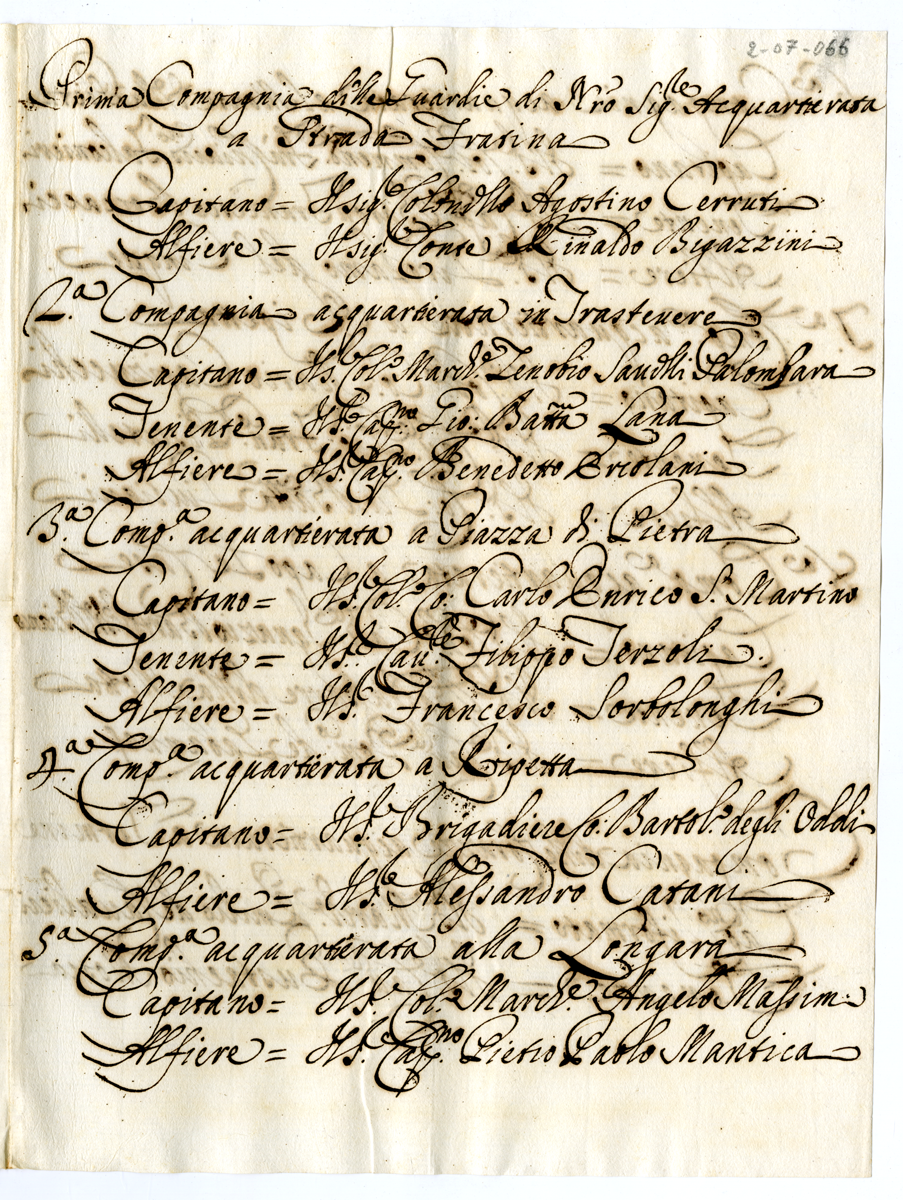 2-07-066
Prima Compagnia delle Guardie di Nrõ Sig.re Acquartierata
a Strada Fratina
Capitano = Il sig.re Collonello Agostino Cerruti
Alfiere = Il sig.re Conte Rinaldo Bigazzini
2.a Compagnia acquartierata in Trastevere
Capitano = Il S.re Col.o March.e Zenobio Savelli Palombara
Tenente = Il S.re Cap.no Gio: Batta Lana
Alfiere = Il S.re Cap.no Benedetto Ercolani
3.a Comp.a acquartierata a Piazza di Pietra
Capitano = Il S.re Col.o Co: Carlo Enrico S. Martino
Tenente = Il S.re Cau.re Filippo Terzoli.
Alfiere = Il S.re Francesco Sorbolonghi
4.a Comp.a acquartierata a Ripetta
Capitano = Il S.re Brigadiere Co: Bartol.o degli Oddi
Alfiere = Il S.re Alessandro Catani
5.a Comp.a acquartierata alla Longara
Capitano = Il S.re Col.o March.e Angelo Massimi
Alfiere = Il S.re Cap.no Pietro Paolo Mantica